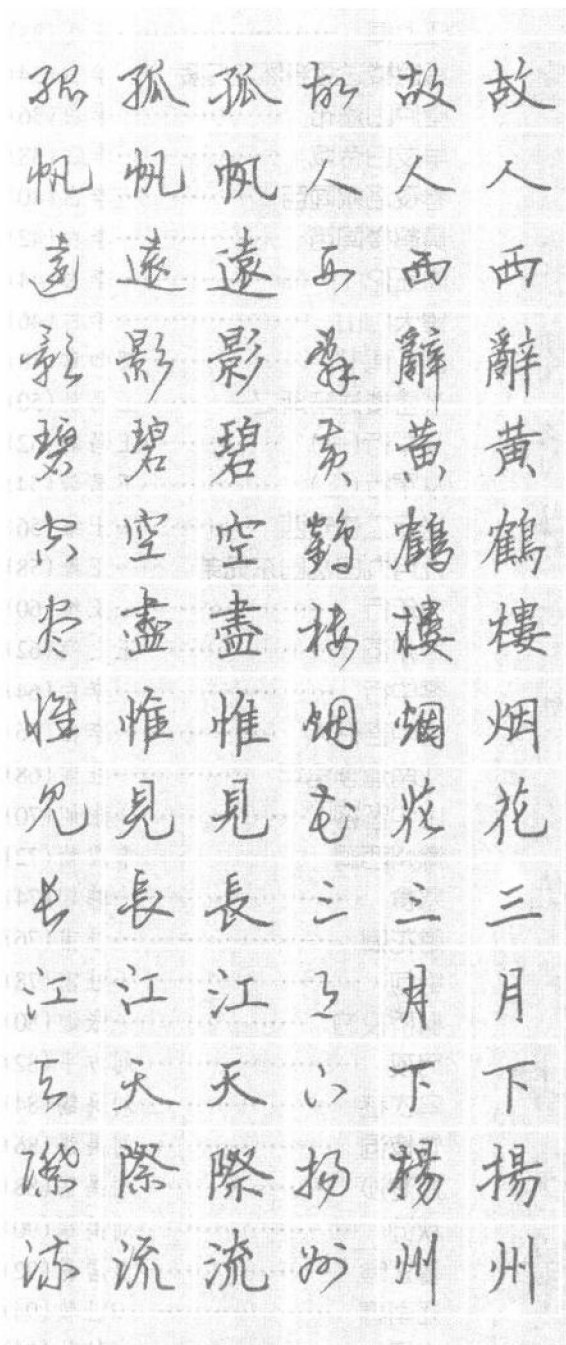 故人西辭黄鶴樓烟花三月下揚州
故人西辭黄鶴樓烟花三月下揚州
故人西辭黄鶴樓烟花三月下揚州
孤帆遠影碧空盡惟見長江天際流
孤帆遠影碧空盡惟見長江天際流
孤帆遠影碧空盡惟見長江天際流